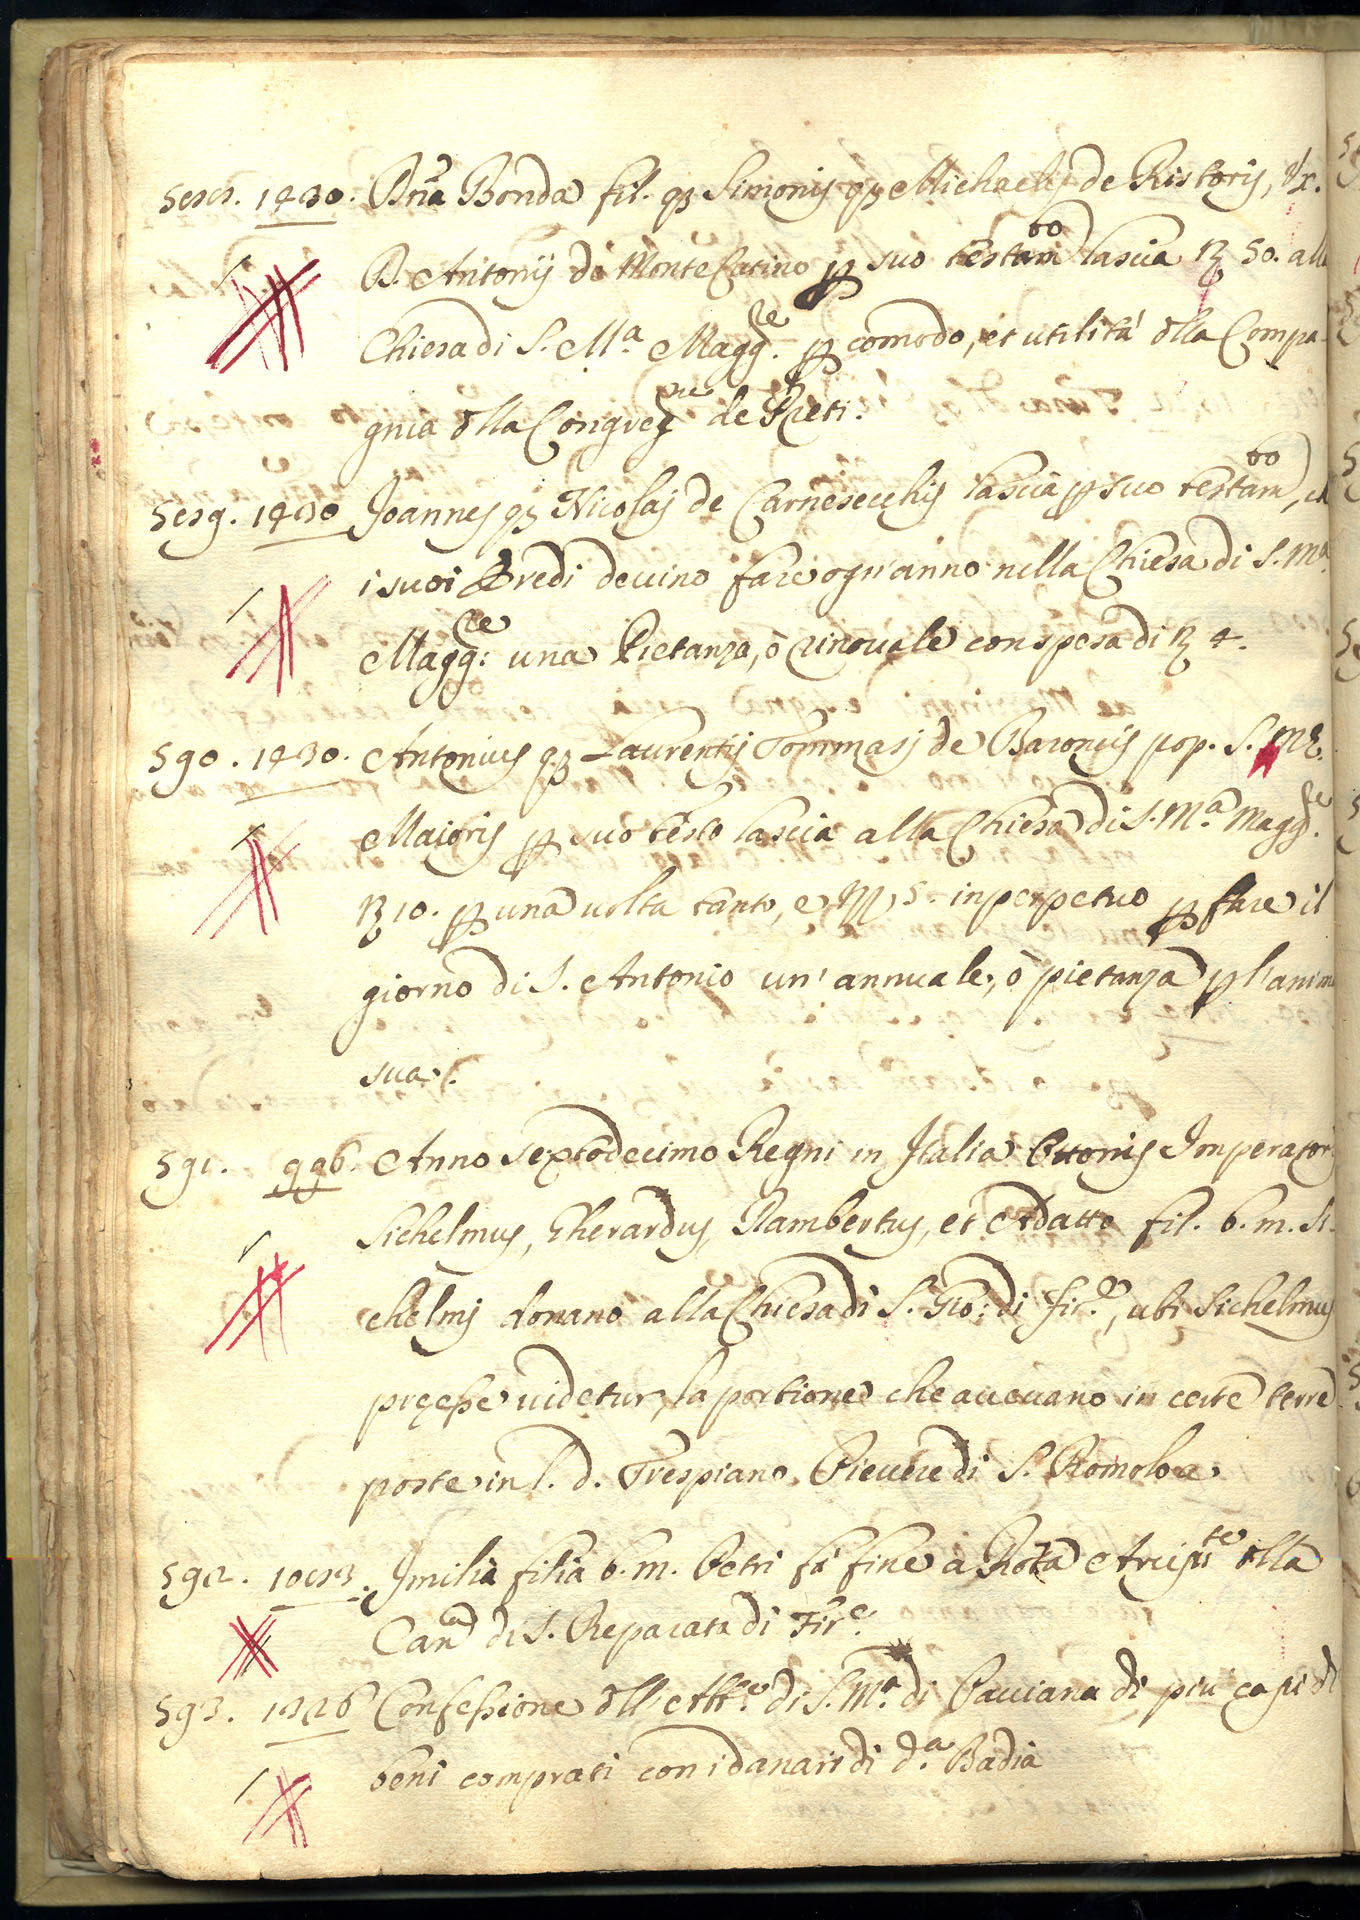 588. 1430. Dña Bonda fil. qz Simonis qz Michaelis de Ristoris, Vx.
D. Antonij de Monte Catino p suo testamto lascia 50. alla
Chiesa di S. Ma. Maggre. p comodo, et utilità dlla Compa-
gnia dlla Congregne de Preti.
589. 1430 Joannes qz Nicolai de Carnesecchis lascia p suo testamto,
i suoi Eredi devino fare ogn'anno nella Chiesa di S. Ma.
Maggre: una Pietanza, ò Rinovale con spesa di 4.
590. 1430. Antonius qz Laurentij Tommasi de Baroncis pop. S. Mẹ.
Maioris p suo testo lascia alla Chiesa di S. Ma. Maggre.
10. p una volta tanto, e 5. in perpetuo p fare il
giorno di S. Antonio un' annuale, ò pietanza p l'anima
sua.
591. 996. Anno sextodecimo Regni in Italia Ottonis Imperatoris
Sichelmus, Gherardus, Rambertus, et Adatto fil. b. m. Si-
chelmi donano alla Chiesa di S. Gio: di Fire., ubi Sichelmus
pręesse videtur, la portione che avevano in certe terre
poste in l. d. Trespiano, Pievere di S. Romolo
592. Imilia filia b. m. Petri fa fine a Rota Arcipte dlla
Canca di S. Reparata di Fire.
593. Confessione dll' Abbe. di S. Ma. di Pacciana di più capi di
beni comprati con i danari di da. Badia